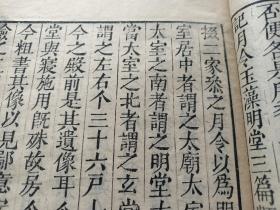 記月令玉藻明堂三篇
掇二家叅之月令以爲明
室居中者謂之太廟太
太室之南者謂之明堂
當太室之北者謂之玄堂
謂之左右个三十六戸
今之殿前是其遺像耳
堂與寢施用旣殊故房
今粗書其像以見鄙意